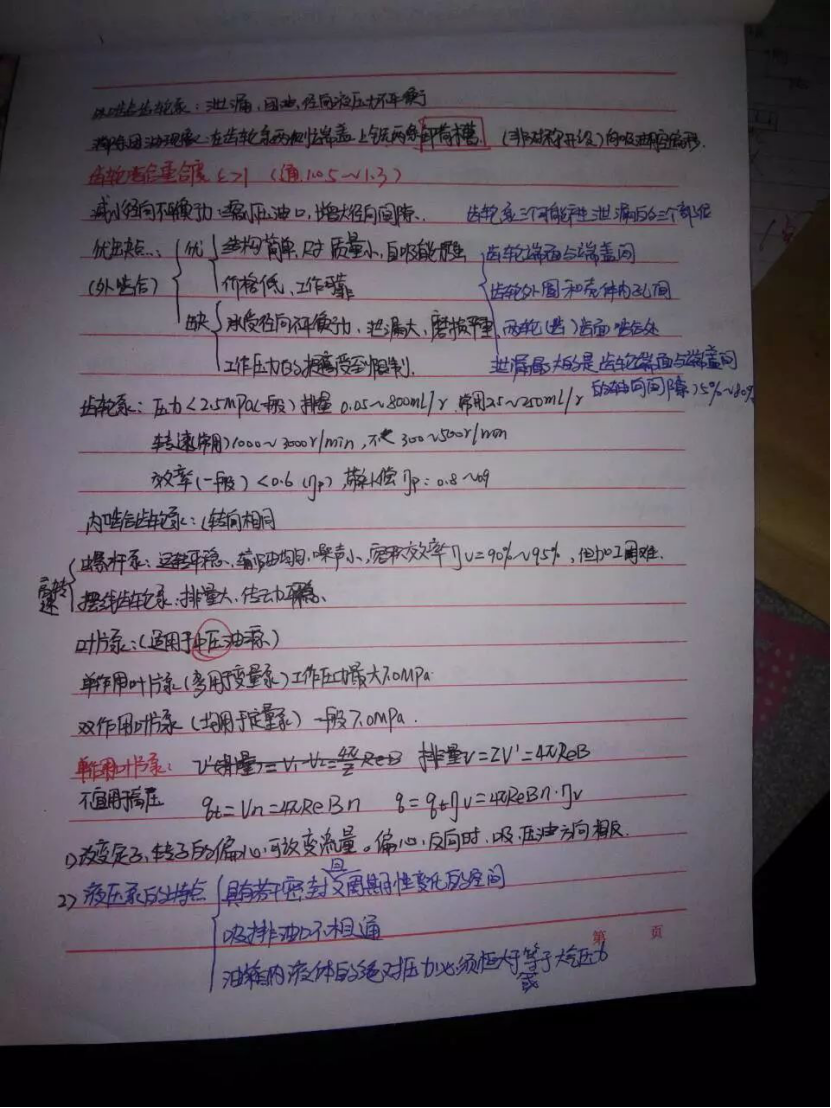 外啮合齿轮泵：泄漏，困油，径向液压力不平衡
消除困油现象：在齿轮泵两侧端盖上铣两条卸荷槽.（非对称开设）向吸油腔偏移.
齿轮啮合重合度 ε>1 （通1.05~1.3）
减小径向不平衡力：缩小压油口，增大径向间隙. 齿轮泵三个可能产生泄漏的三个部位
优缺点： 优 结构简单，尺寸 质量小，自吸能力强 齿轮端面与端盖间
（外啮合） 价格低，工作可靠 齿轮外圆和壳体内孔间
缺 承受径向不平衡力，泄漏大，磨损严重 两轮（齿）齿面啮合处
工作压力的提高受到限制. 泄漏最大的是齿轮端面与端盖间
的轴向间隙）75%~80%
齿轮泵：压力<2.5MPa(一般) 排量 0.05~800mL/r 常用2.5~250mL/r
转速(常用)1000~3000r/min，不 300~500r/min
效率(一般)<0.6 (ηp) 带补偿ηp：0.8~0.9
内啮合齿轮泵：（转向相同
高转速 螺杆泵：运转平稳、输油均匀、噪声小、容积效率ηv=90%~95%，但加工困难.
摆线齿轮泵：排量大、传动平稳、
叶片泵：（适用于中压油泵）
单作用叶片泵（多用于变量泵）工作压力最大7.0MPa
双作用叶片泵（均用于定量泵）一般7.0MPa.
单作用叶片泵： V'(排量)=V₁-V₂=4π/Z ReB 排量V=ZV'=4πReB
不宜用于高压 qt=Vn=4πReBn q=qtηv=4πReBn·ηv
1）改变定子、转子的偏心，可改变流量。偏心，反向时，吸、压油方向相反.
2）液压泵的特点 具有若干密封且又周期性变化的空间
吸排油口不相通
油箱内液体的绝对压力必须恒大于或等于大气压力
第 页